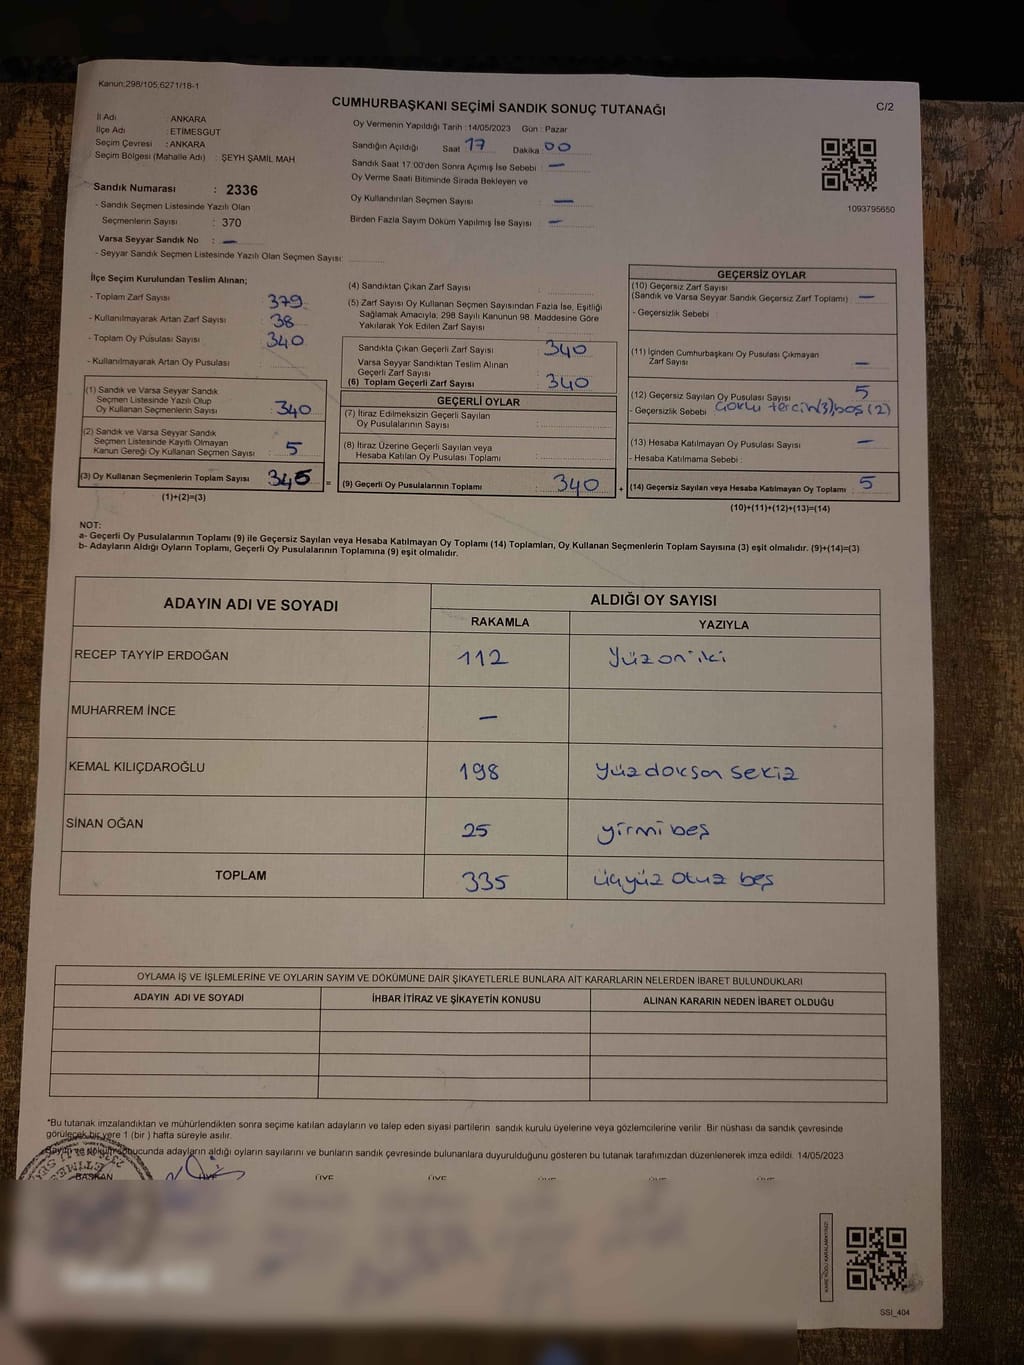 Kanun:298/105;6271/18-1
CUMHURBAŞKANI SEÇİMİ SANDIK SONUÇ TUTANAĞI
C/2
İl Adı : ANKARA
İlçe Adı : ETİMESGUT
Seçim Çevresi : ANKARA
Seçim Bölgesi (Mahalle Adı) : ŞEYH ŞAMİL MAH
Sandık Numarası : 2336
- Sandık Seçmen Listesinde Yazılı Olan
Seçmenlerin Sayısı : 370
Varsa Seyyar Sandık No : —
- Seyyar Sandık Seçmen Listesinde Yazılı Olan Seçmen Sayısı:
Oy Vermenin Yapıldığı Tarih : 14/05/2023 Gün : Pazar
Sandığın Açıldığı Saat 17 Dakika 00
Sandık Saat 17:00'den Sonra Açımış İse Sebebi : —
Oy Verme Saati Bitiminde Sırada Bekleyen ve
Oy Kullandırılan Seçmen Sayısı : —
Birden Fazla Sayım Döküm Yapılmış İse Sayısı : —
1093795650
İlçe Seçim Kurulundan Teslim Alınan;
- Toplam Zarf Sayısı : 379
- Kullanılmayarak Artan Zarf Sayısı : 38
- Toplam Oy Pusulası Sayısı : 340
- Kullanılmayarak Artan Oy Pusulası :
(1) Sandık ve Varsa Seyyar Sandık
Seçmen Listesinde Yazılı Olup
Oy Kullanan Seçmenlerin Sayısı : 340
(2) Sandık ve Varsa Seyyar Sandık
Seçmen Listesinde Kayıtlı Olmayan
Kanun Gereği Oy Kullanan Seçmen Sayısı : 5
(3) Oy Kullanan Seçmenlerin Toplam Sayısı : 345
(1)+(2)=(3)
=
(4) Sandıktan Çıkan Zarf Sayısı :
(5) Zarf Sayısı Oy Kullanan Seçmen Sayısından Fazla İse, Eşitliği
Sağlamak Amacıyla; 298 Sayılı Kanunun 98. Maddesine Göre
Yakılarak Yok Edilen Zarf Sayısı :
Sandıkta Çıkan Geçerli Zarf Sayısı : 340
Varsa Seyyar Sandıktan Teslim Alınan
Geçerli Zarf Sayısı :
(6) Toplam Geçerli Zarf Sayısı : 340
GEÇERLİ OYLAR
(7) İtiraz Edilmeksizin Geçerli Sayılan
Oy Pusulalarının Sayısı :
(8) İtiraz Üzerine Geçerli Sayılan veya
Hesaba Katılan Oy Pusulası Toplamı :
(9) Geçerli Oy Pusulalarının Toplamı : 340
+
GEÇERSİZ OYLAR
(10) Geçersiz Zarf Sayısı
(Sandık ve Varsa Seyyar Sandık Geçersiz Zarf Toplamı) : —
- Geçersizlik Sebebi :
(11) İçinden Cumhurbaşkanı Oy Pusulası Çıkmayan
Zarf Sayısı : —
(12) Geçersiz Sayılan Oy Pusulası Sayısı : 5
- Geçersizlik Sebebi : Çoklu tercih(3)boş(2)
(13) Hesaba Katılmayan Oy Pusulası Sayısı : —
- Hesaba Katılmama Sebebi :
(14) Geçersiz Sayılan veya Hesaba Katılmayan Oy Toplamı : 5
(10)+(11)+(12)+(13)=(14)
NOT:
a- Geçerli Oy Pusulalarının Toplamı (9) ile Geçersiz Sayılan veya Hesaba Katılmayan Oy Toplamı (14) Toplamları, Oy Kullanan Seçmenlerin Toplam Sayısına (3) eşit olmalıdır. (9)+(14)=(3)
b- Adayların Aldığı Oyların Toplamı, Geçerli Oy Pusulalarının Toplamına (9) eşit olmalıdır.
ADAYIN ADI VE SOYADI
ALDIĞI OY SAYISI
RAKAMLA YAZIYLA
RECEP TAYYİP ERDOĞAN 112 Yüz on iki
MUHARREM İNCE —
KEMAL KILIÇDAROĞLU 198 yüz doksan sekiz
SİNAN OĞAN 25 yirmi beş
TOPLAM 335 üçyüz otuz beş
OYLAMA İŞ VE İŞLEMLERİNE VE OYLARIN SAYIM VE DÖKÜMÜNE DAİR ŞİKAYETLERLE BUNLARA AİT KARARLARIN NELERDEN İBARET BULUNDUKLARI
ADAYIN ADI VE SOYADI İHBAR İTİRAZ VE ŞİKAYETİN KONUSU ALINAN KARARIN NEDEN İBARET OLDUĞU
*Bu tutanak imzalandıktan ve mühürlendikten sonra seçime katılan adayların ve talep eden siyasi partilerin sandık kurulu üyelerine veya gözlemcilerine verilir. Bir nüshası da sandık çevresinde
görülecek bir yere 1 (bir ) hafta süreyle asılır.
Sayım ve döküm sonucunda adayların aldığı oyların sayılarını ve bunların sandık çevresinde bulunanlara duyurulduğunu gösteren bu tutanak tarafımızdan düzenlenerek imza edildi. 14/05/2023
BAŞKAN ÜYE ÜYE ÜYE
SSI_404